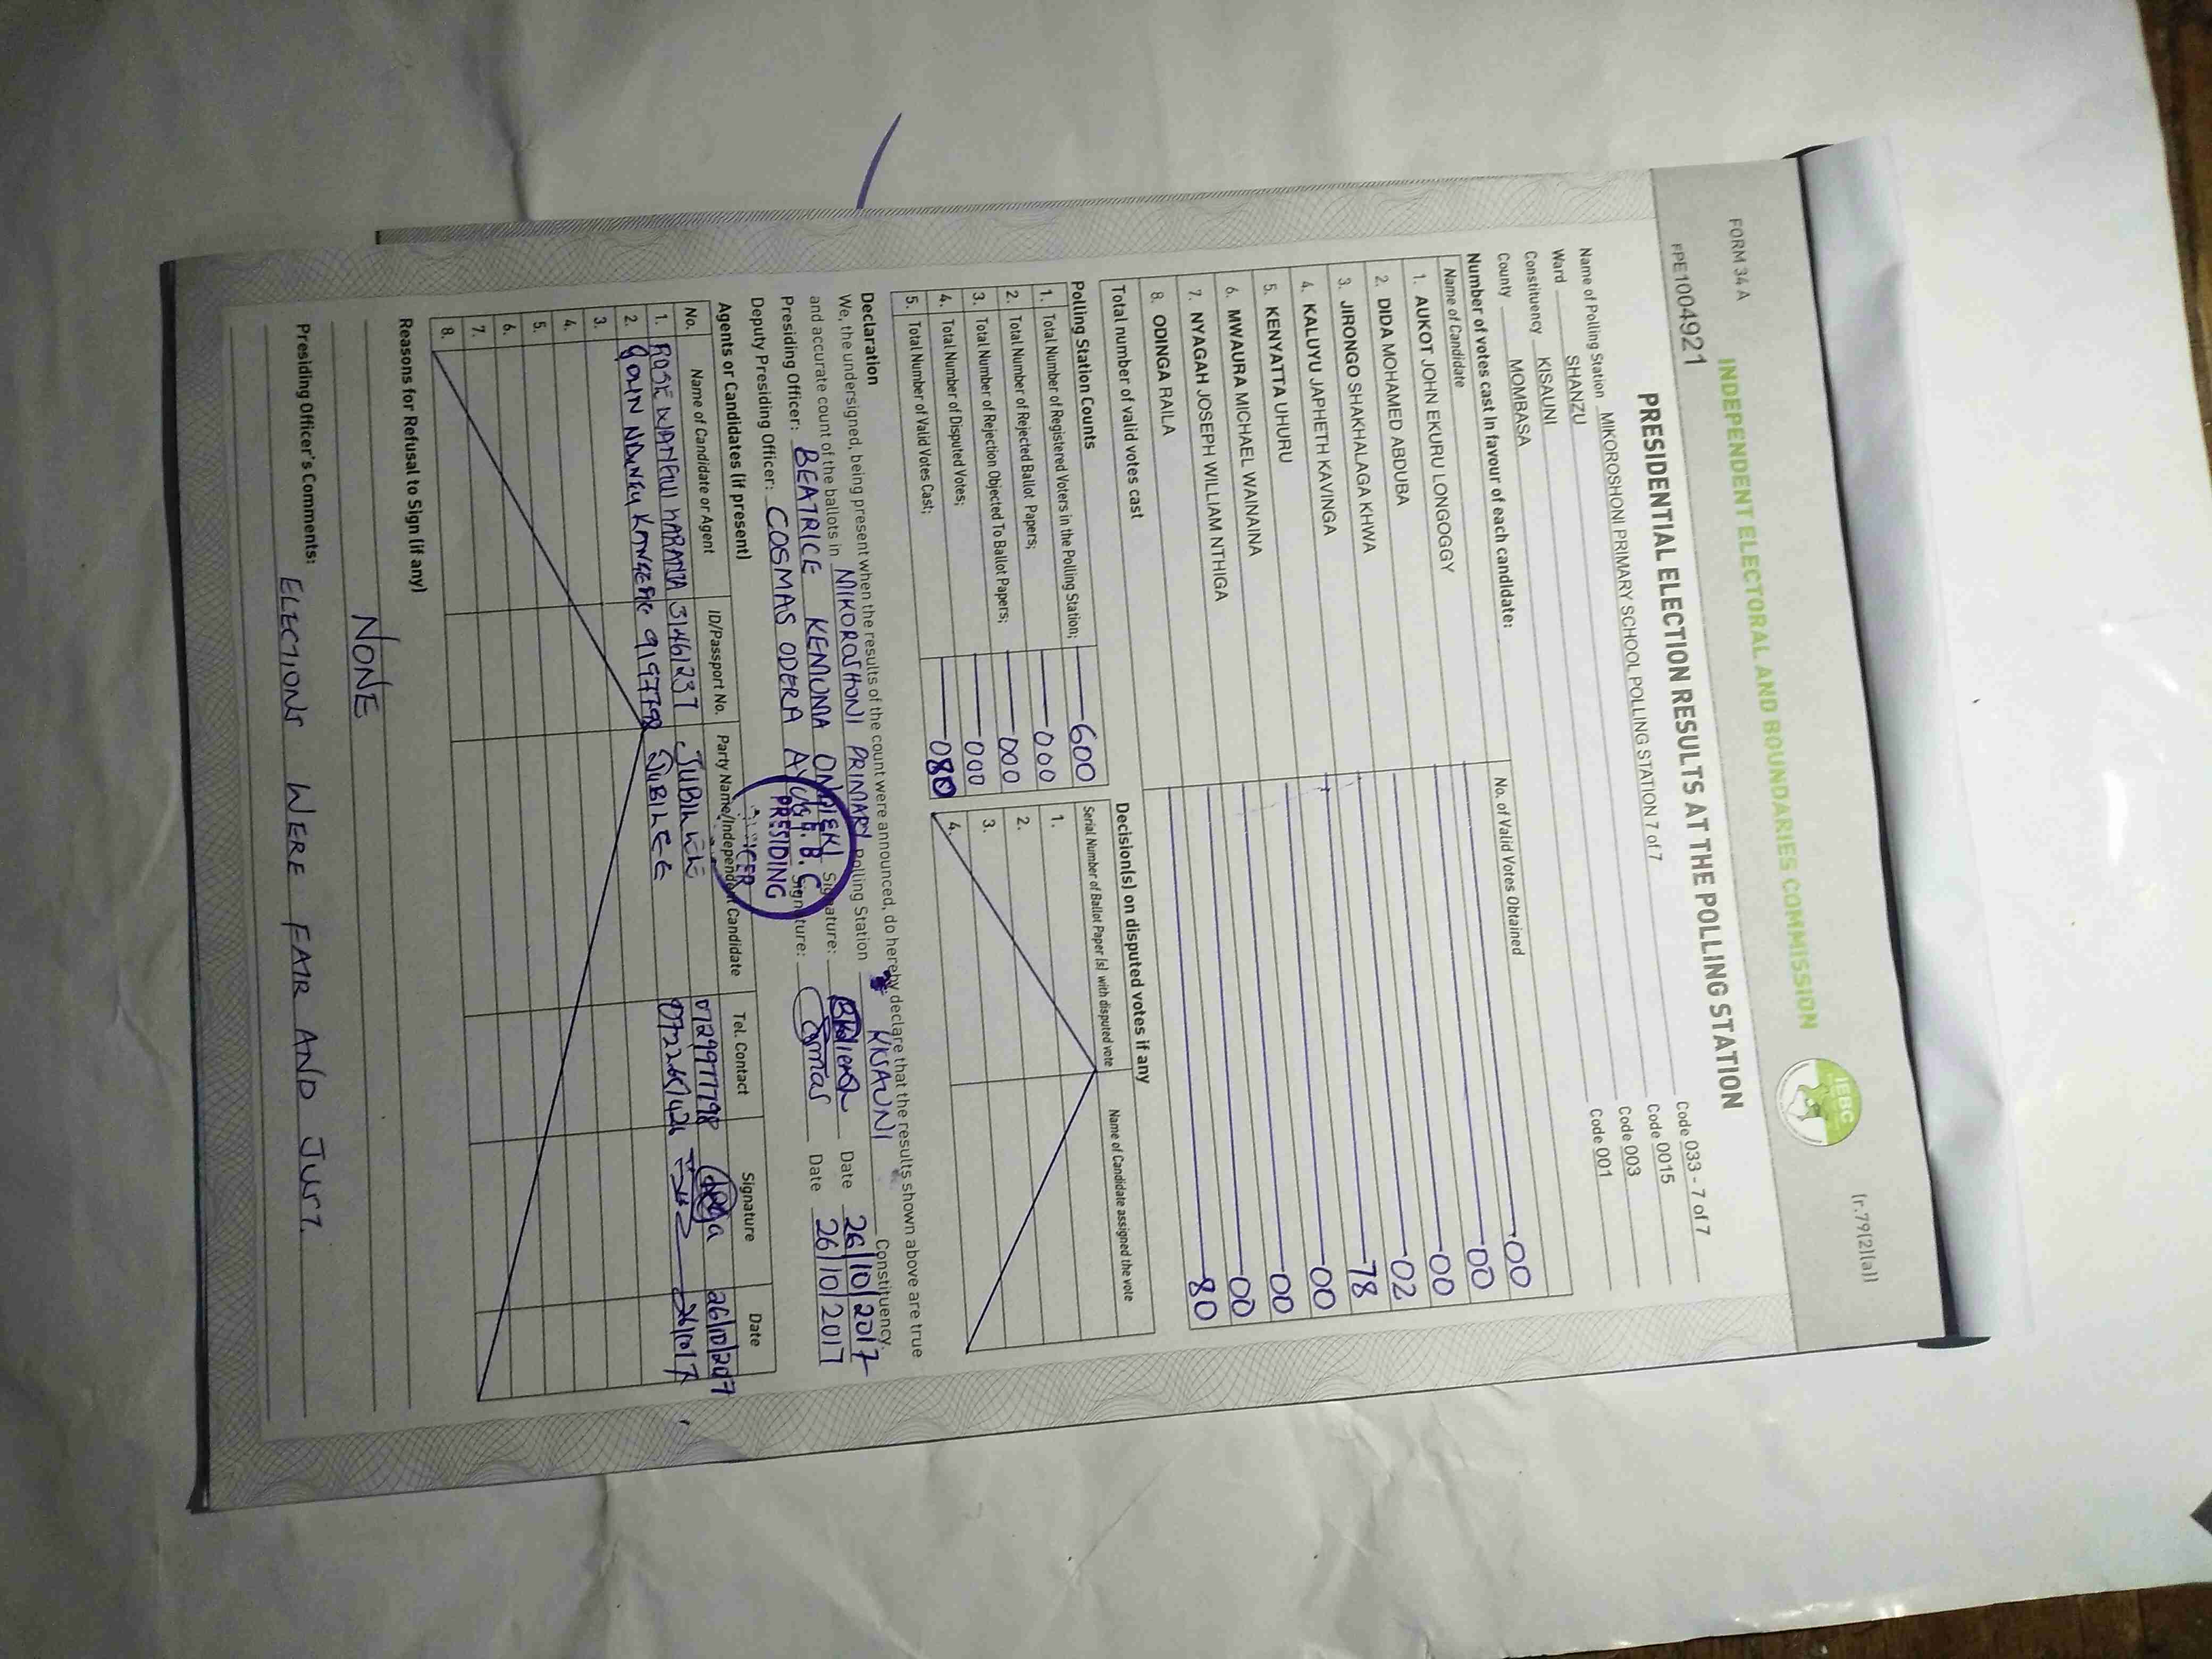 FORM 34 A
(r.79(2)(a))
INDEPENDENT ELECTORAL AND BOUNDARIES COMMISSION
IEBC
FPE1004921
PRESIDENTIAL ELECTION RESULTS AT THE POLLING STATION
Name of Polling Station MIKOROSHONI PRIMARY SCHOOL POLLING STATION 7 of 7 Code 033 - 7 of 7
Ward SHANZU Code 0015
Constituency KISAUNI Code 003
County MOMBASA Code 001
Number of votes cast in favour of each candidate:
Name of Candidate No. of Valid Votes Obtained
1. AUKOT JOHN EKURU LONGOGGY 00
2. DIDA MOHAMED ABDUBA 00
3. JIRONGO SHAKHALAGA KHWA 00
4. KALUYU JAPHETH KAVINGA 02
5. KENYATTA UHURU 78
6. MWAURA MICHAEL WAINAINA 00
7. NYAGAH JOSEPH WILLIAM NTHIGA 00
8. ODINGA RAILA 00
Total number of valid votes cast 80
Polling Station Counts
1. Total Number of Registered Voters in the Polling Station; 600
2. Total Number of Rejected Ballot Papers; 000
3. Total Number of Rejection Objected To Ballot Papers; 000
4. Total Number of Disputed Votes; 000
5. Total Number of Valid Votes Cast; 080
Decision(s) on disputed votes if any
Serial Number of Ballot Paper (s) with disputed vote Name of Candidate assigned the vote
1.
2.
3.
4.
Declaration
We, the undersigned, being present when the results of the count were announced, do hereby declare that the results shown above are true
and accurate count of the ballots in MIKOROSHONI PRIMARY Polling Station KISAUNI Constituency.
Presiding Officer: BEATRICE KEMUMA ONDIEKI Signature: Date 26/10/2017
Deputy Presiding Officer: COSMAS ODERA Signature: Cosmas Date 26/10/2017
PRESIDING
OFFICER
Agents or Candidates (if present)
No. Name of Candidate or Agent ID/Passport No. Party Name/Independent Candidate Tel. Contact Signature Date
1. ROSE 31461237 JUBILEE 0729977798 26/10/2017
2. 9197798 JUBILEE 26/10/17
3.
4.
5.
6.
7.
8.
Reasons for Refusal to Sign (if any)
NONE
Presiding Officer's Comments:
ELECTIONS WERE FAIR AND JUST.